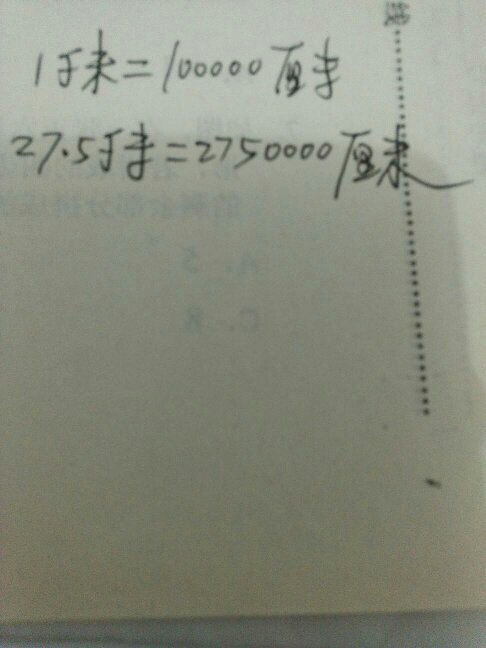 1千米=100000厘米
27.5千米=2750000厘米
线